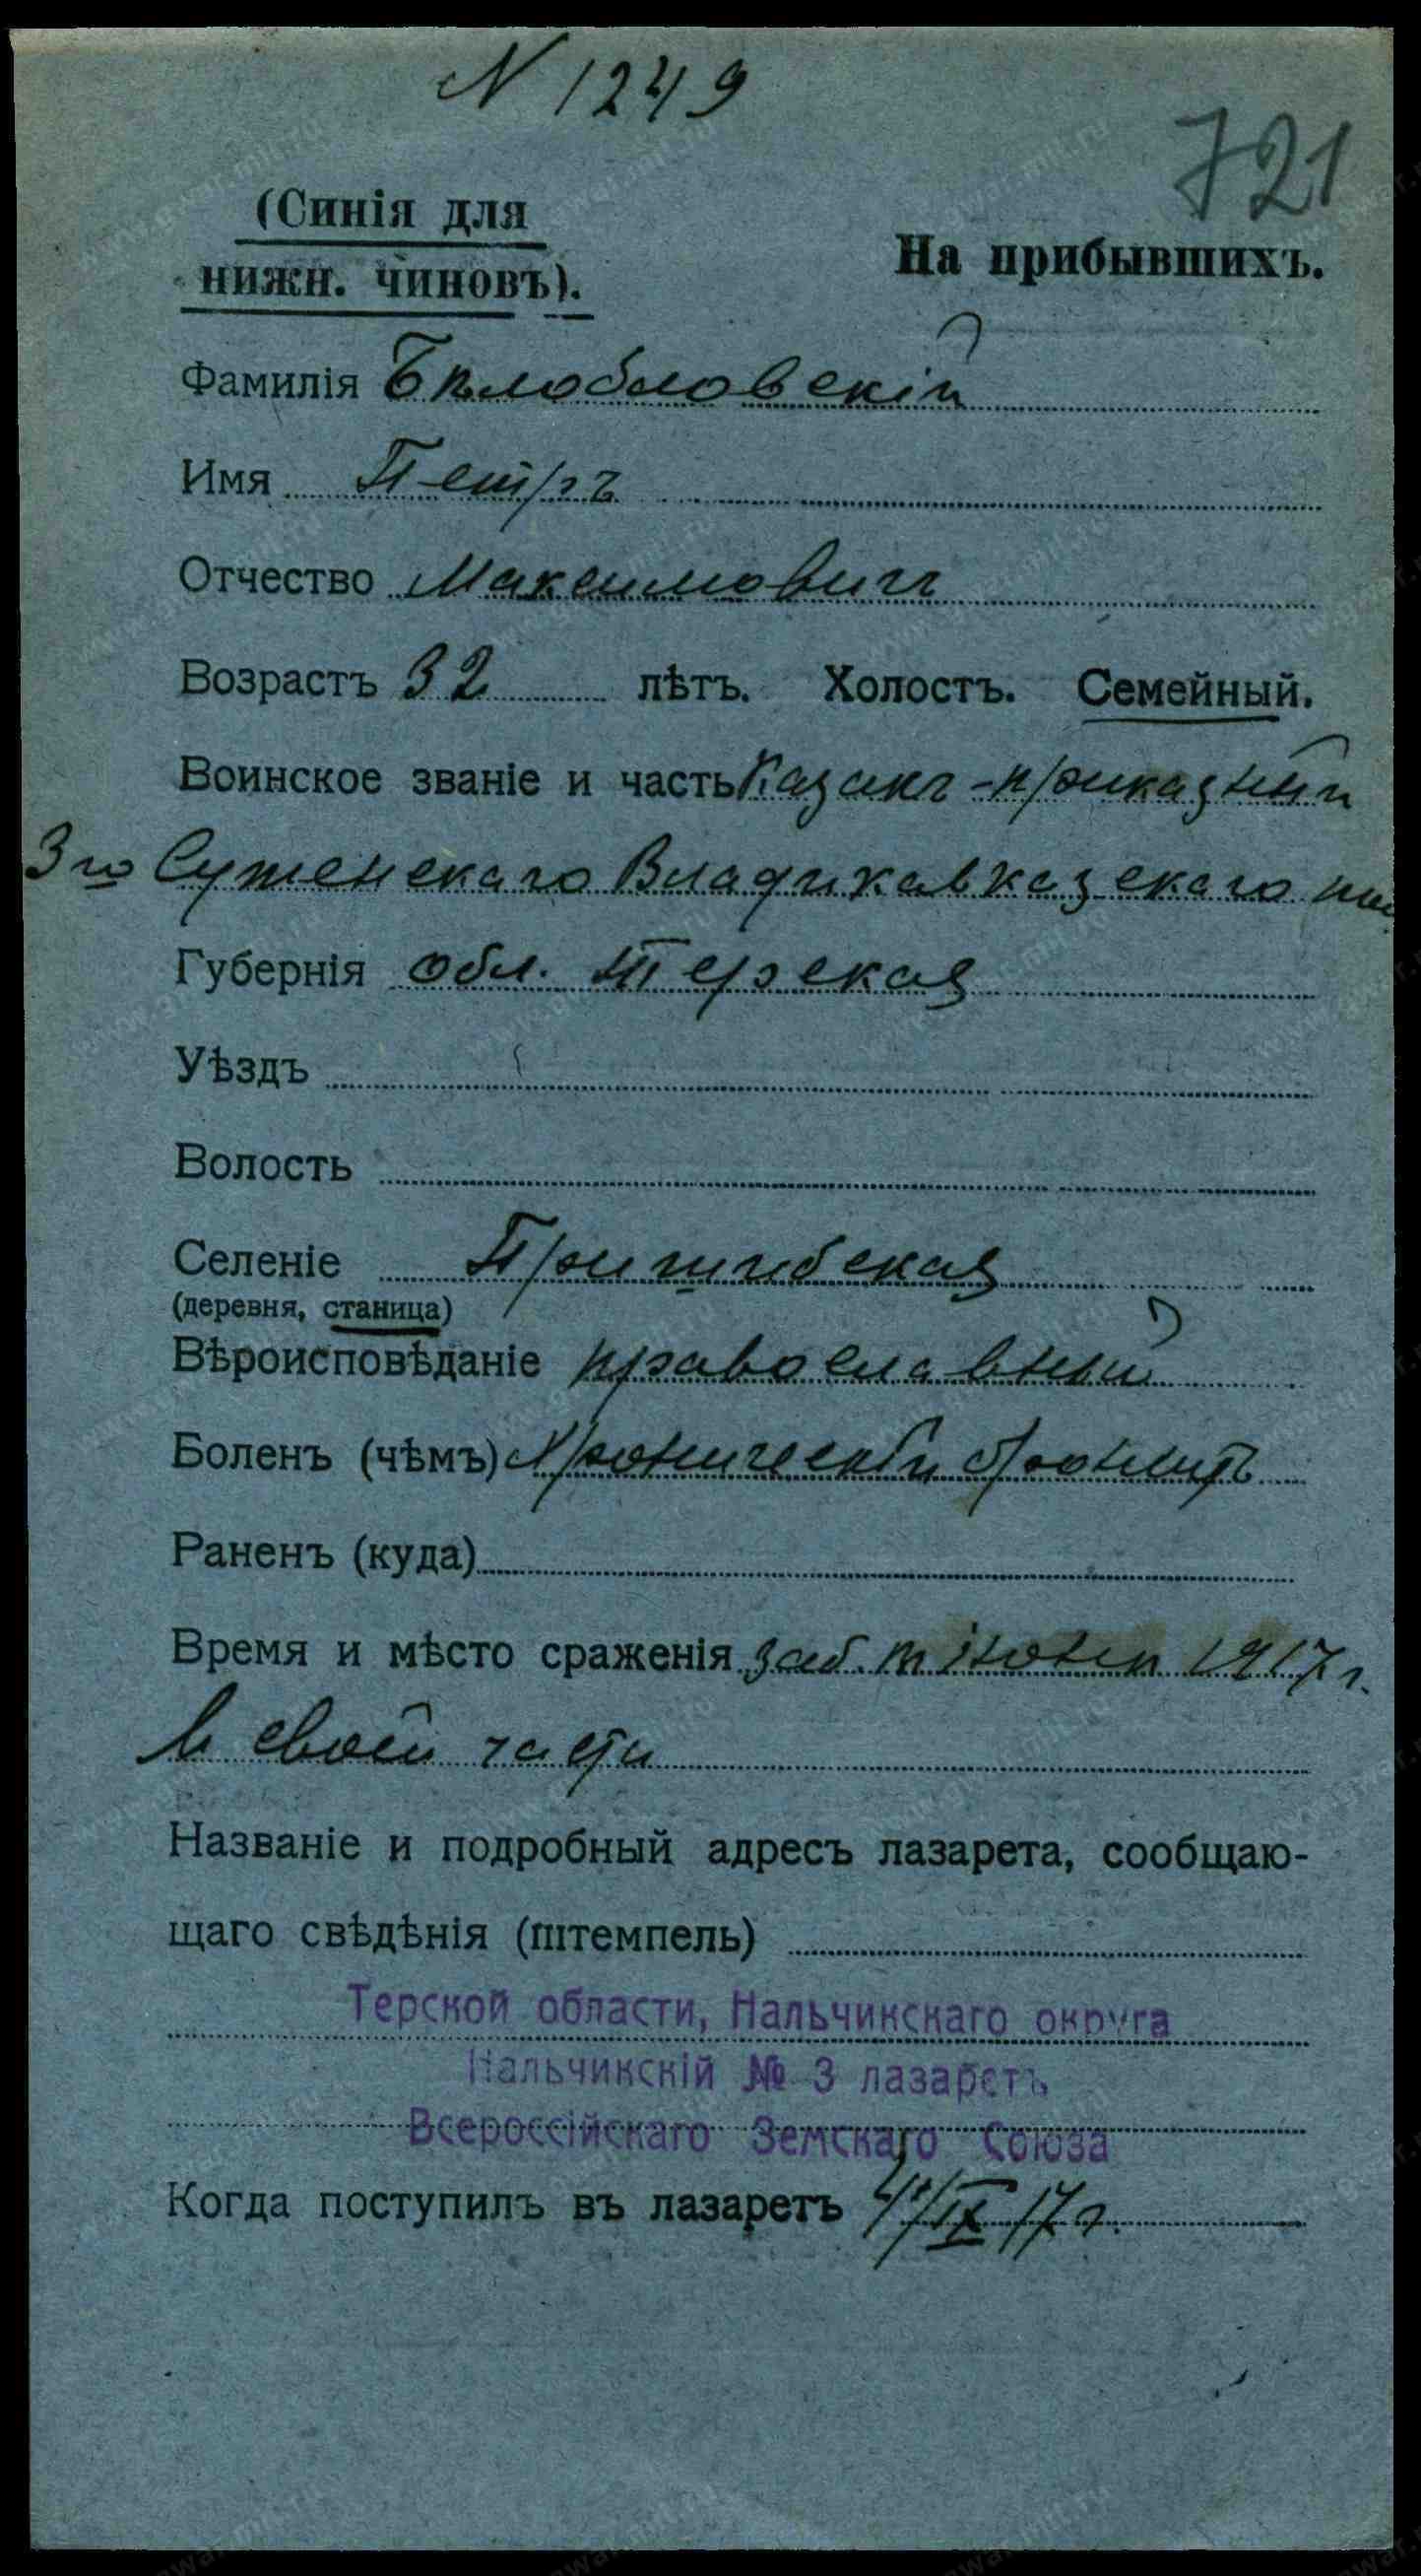 N 1249
721
(Синія для
нижн. чиновъ).
На прибывшихъ.
Фамилія Бѣлобловскій
Имя Петръ
Отчество Максимовичъ
Возрастъ 32 лѣтъ. Холостъ. Семейный.
Воинское званіе и часть Казакъ-приказный
3го Суженскаго Владикавказскаго пол
Губернія обл. Терская
Уѣздъ
Волость
Селеніе Пришибская
(деревня, станица)
Вѣроисповѣданіе православный
Боленъ (чѣмъ) Хроническій бронхитъ
Раненъ (куда)
Время и мѣсто сраженія заб. въ іюнѣ 1917 г.
въ своей части
Названіе и подробный адресъ лазарета, сообщаю-
щаго свѣдѣнія (штемпель)
Терской области, Нальчикскаго округа
Нальчикскій № 3 лазаретъ
Всероссійскаго Земскаго Союза
Когда поступилъ въ лазаретъ 4/IX 17 г.